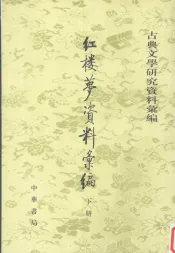 古典文學研究資料彙編
紅樓夢資料彙編
下册
中華書局